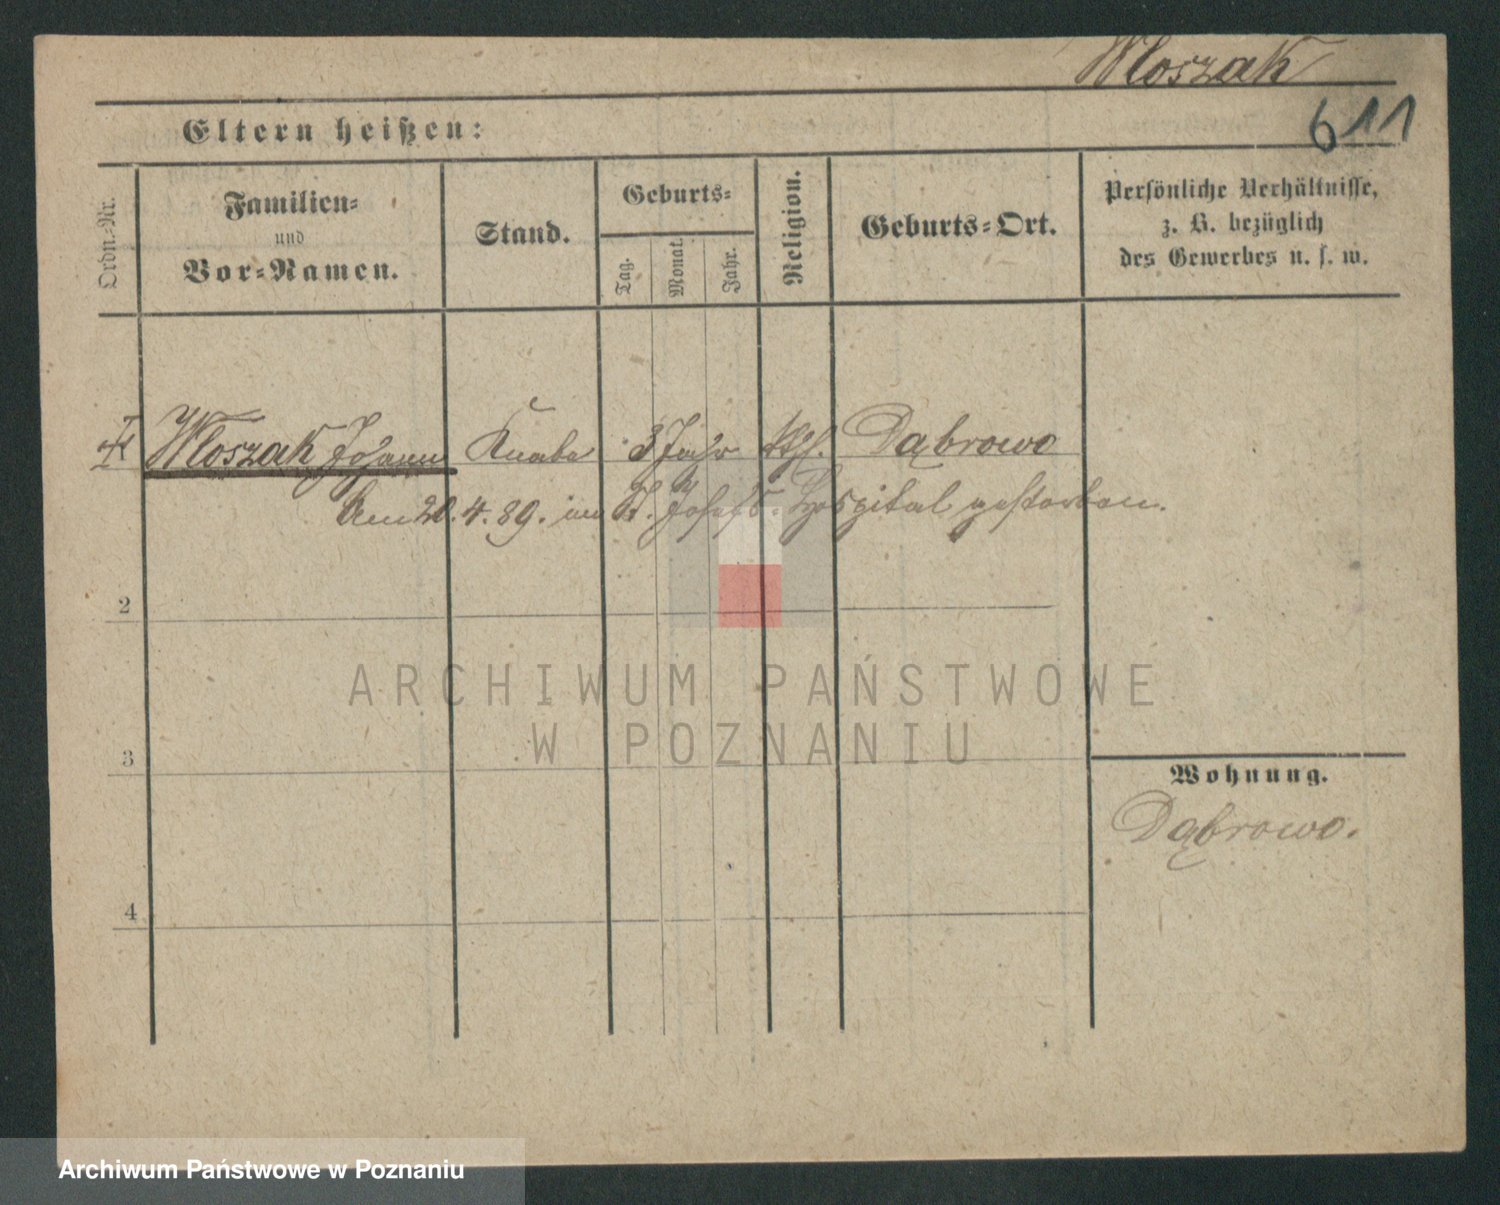 Wloszak
611
Eltern heißen:
Ordn.-Nr.
Familien-
und
Vor-Namen.
Stand.
Geburts-
Tag.
Monat.
Jahr.
Religion.
Geburts-Ort.
Persönliche Verhältnisse,
z. B. bezüglich
des Gewerbes u. s. w.
Wloszak Johann Knabe 3 Jahr kth. Dąbrowo
Am 20.4.89. im St. Josefs-Hospital gestorben.
2
ARCHIWUM PAŃSTWOWE
W POZNANIU
3
Wohnung.
Dąbrowo.
4
Archiwum Państwowe w Poznaniu